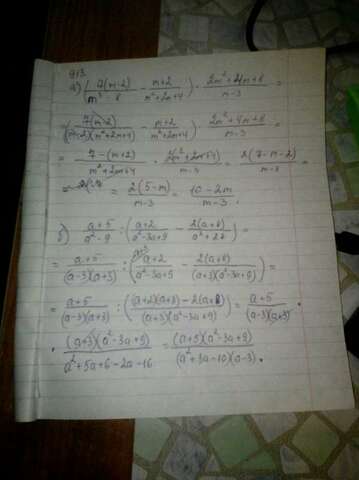 913.
а) (7(m-2)/(m³-8) - (m+2)/(m²+2m+4)) · (2m²+4m+8)/(m-3) =
= (7(m-2)/((m-2)(m²+2m+4)) - (m+2)/(m²+2m+4)) · (2m²+4m+8)/(m-3) =
= (7-(m+2))/(m²+2m+4) · (2(m²+2m+4))/(m-3) = (2(7-m-2))/(m-3) =
= (2(5-m))/(m-3) = (10-2m)/(m-3).
б) (a+5)/(a²-9) : ((a+2)/(a²-3a+9) - (2(a+8))/(a³+27)) =
= (a+5)/((a-3)(a+3)) : ((a+2)/(a²-3a+9) - (2(a+8))/((a+3)(a²-3a+9))) =
= (a+5)/((a-3)(a+3)) : (((a+2)(a+3)-2(a+8))/((a+3)(a²-3a+9))) = (a+5)/((a-3)(a+3)) ·
· ((a+3)(a²-3a+9))/(a²+5a+6-2a-16) = ((a+5)(a²-3a+9))/((a²+3a-10)(a-3)).